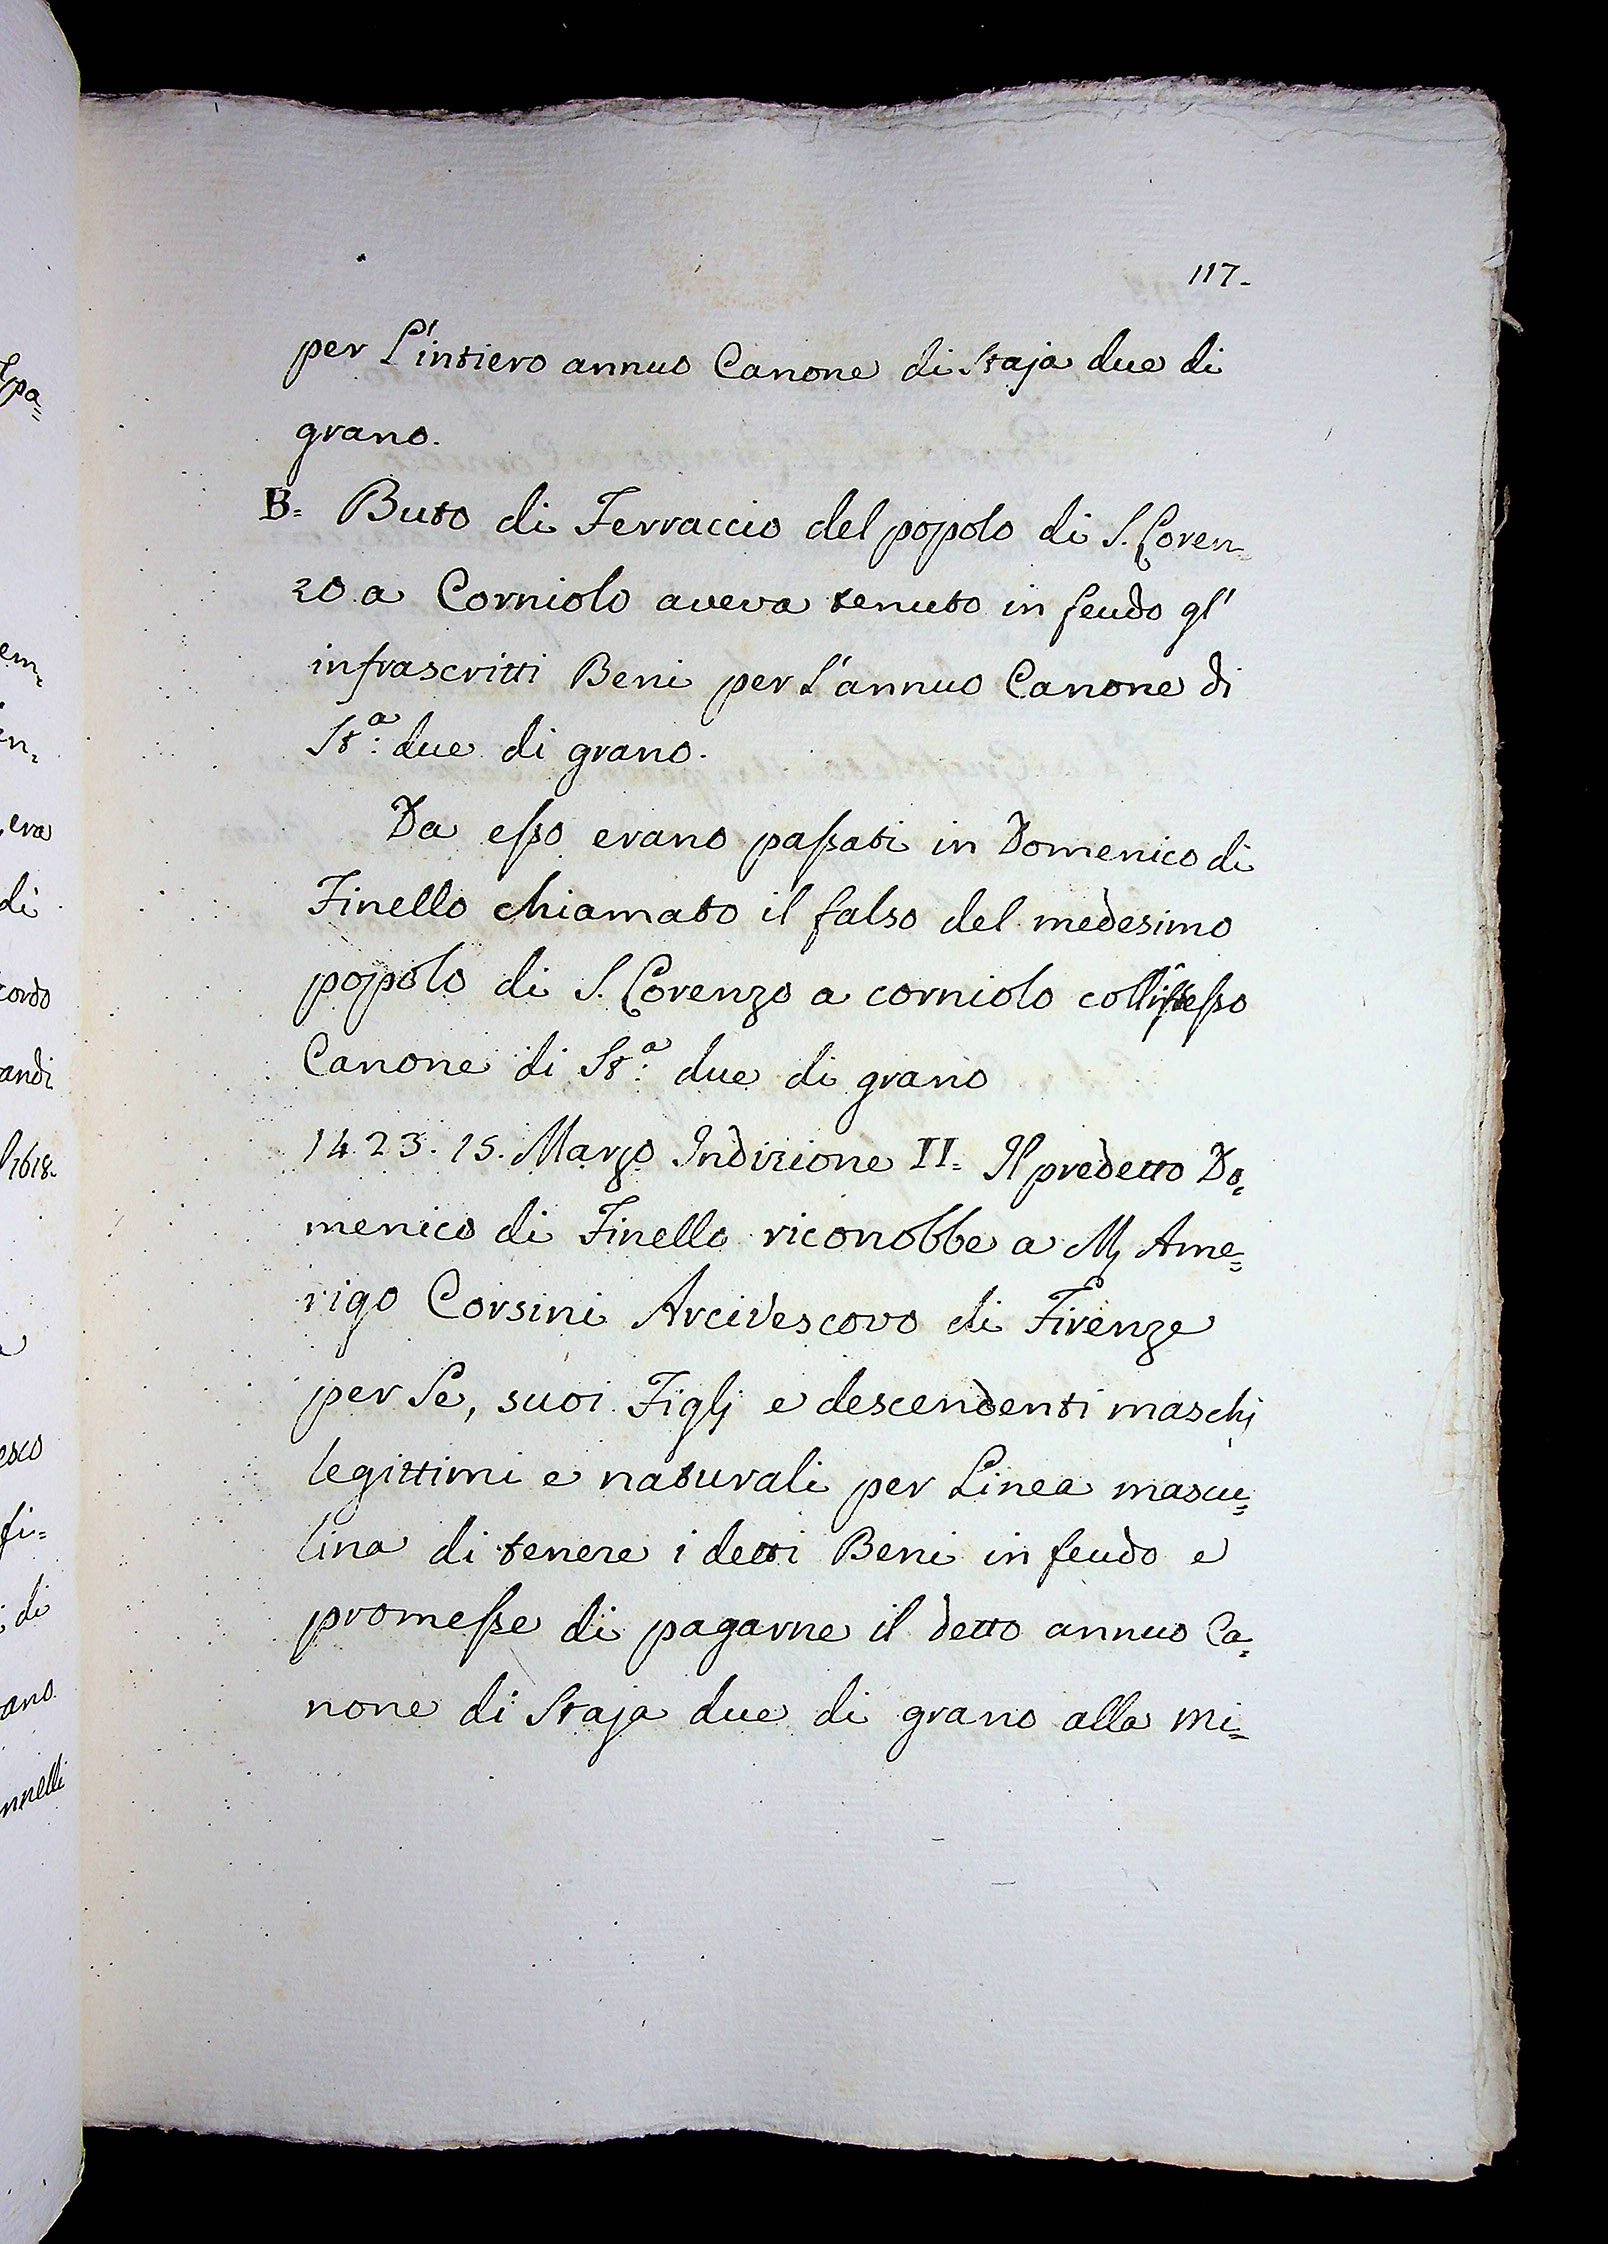 117.
per L'intiero annuo Canone di Staja due di
grano.
B= Buto di Ferraccio del popolo di S. Loren=
zo a Corniolo aveva tenuto in feudo gl'
infrascritti Beni per L'annuo Canone di
St.ª: due di grano.
Da esso erano passati in Domenico di
Finello chiamato il falso del medesimo
popolo di S. Lorenzo a corniolo coll'istesso
Canone di St.ª: due di grano
1423. 15. Marzo Indizione II= Il predetto Do=
menico di Finello riconobbe a M. Ame=
rigo Corsini Arcivescovo di Firenze
per Se, suoi Figlj e descendenti maschj
legittimi e naturali per Linea mascu=
lina di tenere i detti Beni in feudo e
promesse di pagarne il detto annuo Ca=
none di Staja due di grano alla mi=
pa=
em=
en=
era
di
cordo
andi
1618.
esco
fi=
di
ano
nnelli